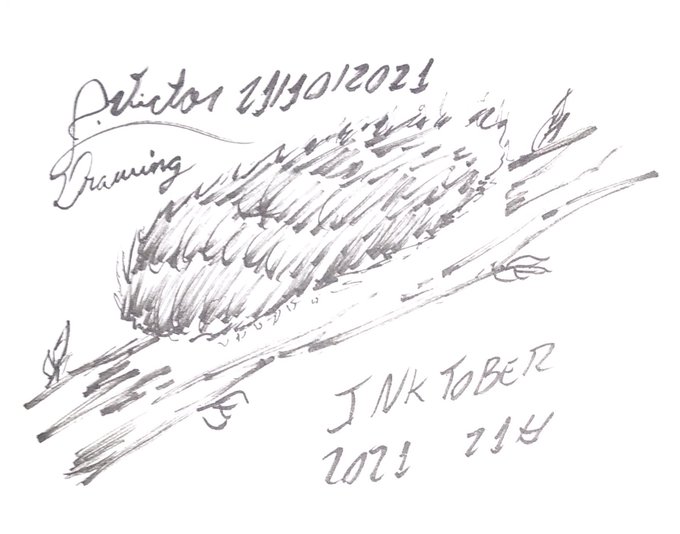 Victor 21/10/2021
Drawing
INKTOBER
2021